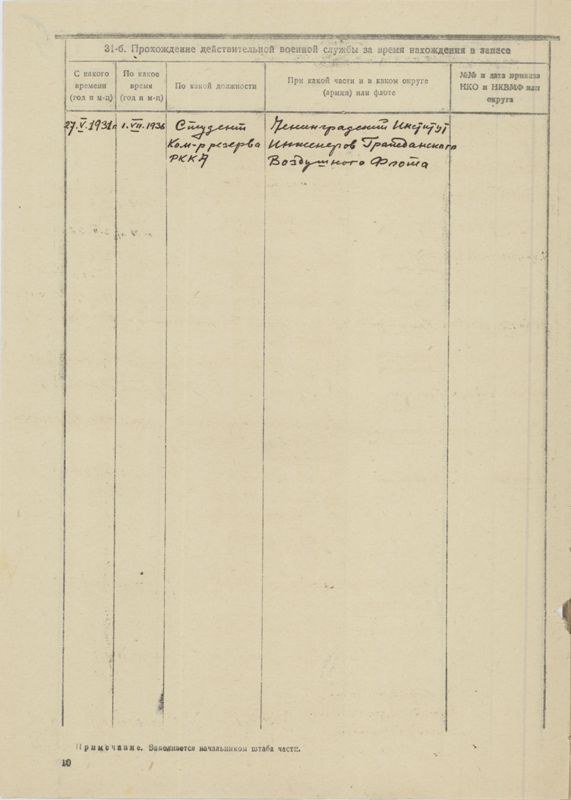 31-б. Прохождение действительной военной службы за время нахождения в запасе
С какого
времени
(год и м-ц)
По какое
время
(год и м-ц)
По какой должности
При какой части и в каком округе
(армия) или флоте
№№ и дата приказа
НКО и НКВМФ или
округа
27.V.1931г.
1.VII.1936
Студент
Ком-р резерва
РККА
Ленинградский Институт
Инженеров Гражданского
Воздушного Флота
Примечание. Заполняется начальником штаба части.
10